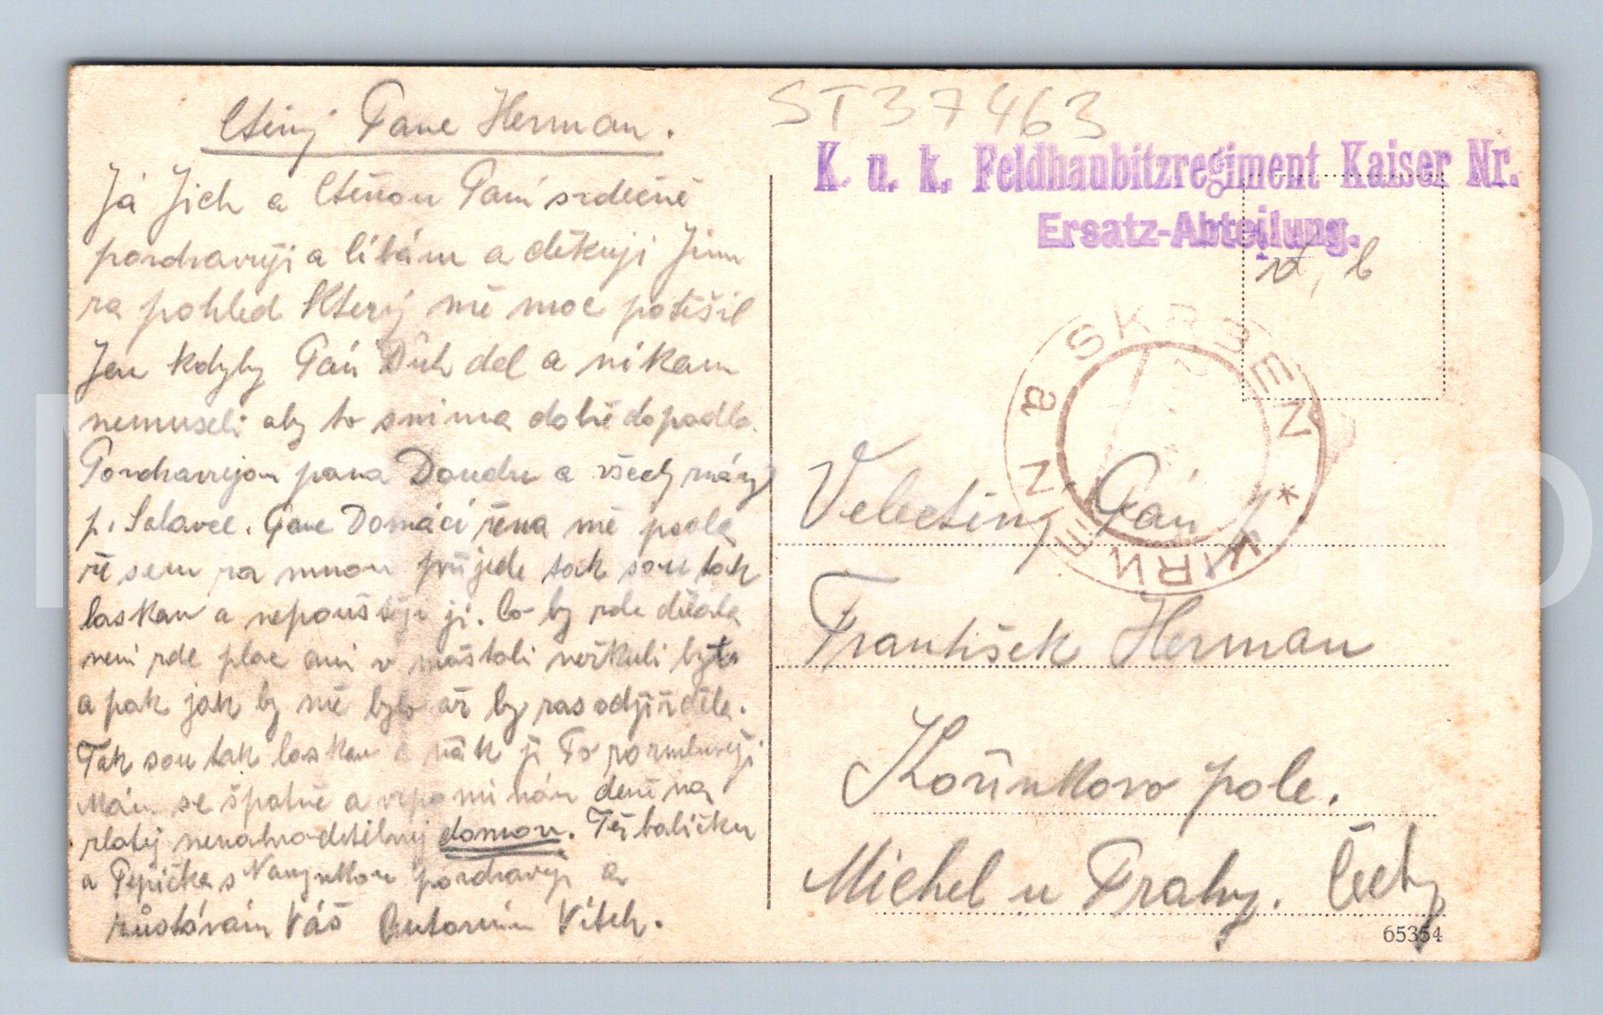 Ctěný Pane Herman.
Já Jich a Ctěnou Paní srdečně
pozdravuji a líbám a děkuji Jim
za pohled Který mě moc potěšil
Jen kdyby Pán Bůh del a nikam
nemuseli aby to s nima dobře dopadlo.
Pozdravujou pana Doudu a všecky známý
p. Salavec. Pane Domácí žena mě psala
že sem za mnou přijede tak sou tak
laskau a nepouštěji ji. Co by zde dělala
neni zde plac ani v maštali neškuli byto
a pak jak by mě bylo až by zas odjížděla.
Tak sou tak laskau a nák ji to rozmluvěji
Mám se špatně a vzpomínám deně na
zlatej nenahraditelnej domou. Též babičku
a Pepička s Nanynkou pozdravuji a
zůstávám Váš Antonín Vítek.
ST37463
K. u. k. Feldhaubitzregiment Kaiser Nr.
Ersatz-Abteilung.
Velectěný Pán
František Herman
Kořínkovo pole.
Michel u Prahy. Čechy
65354